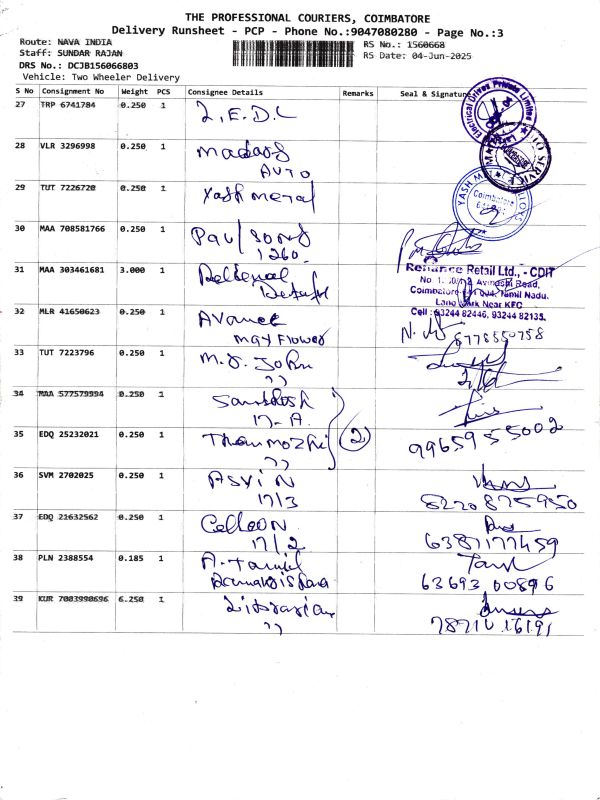 THE PROFESSIONAL COURIERS, COIMBATORE
Delivery Runsheet - PCP - Phone No.:9047080280 - Page No.:3
Route: NAVA INDIA
Staff: SUNDAR RAJAN
DRS No.: DCJB156066803
Vehicle: Two Wheeler Delivery
RS No.: 1560668
RS Date: 04-Jun-2025
S No Consignment No Weight PCS Consignee Details Remarks Seal & Signature
27 TRP 6741784 0.250 1 L.E.D.L
Electrical Drives Private Limited
28 VLR 3296998 0.250 1 Madras
AUTO
AUTO SERVICE
29 TUT 7226720 0.250 1 Yash Metal
YASH METALLOYS
Coimbatore
30 MAA 708581766 0.250 1 Paul Sons
1260.
31 MAA 303461681 3.000 1 Reliance
Reliance Retail Ltd., - CDIT
Avinashi Road,
Coimbatore - 641 004, Tamil Nadu.
Land Mark Near KFC
Cell : 93244 82446, 93244 82135.
32 MLR 41650623 0.250 1 Avance
MayFlower
33 TUT 7223796 0.250 1 M.J. John
34 MAA 577579994 0.250 1 Santhosh
17-A
35 EDQ 25232021 0.250 1 Thanmozhi
(2)
9965955002
36 SVM 2702025 0.250 1 ASVIN
17/3
8220875950
37 EDQ 21632562 0.250 1
17/2
6381177459
38 PLN 2388554 0.185 1 A. Tamil
63693 00896
39 KUR 7003990696 6.250 1 Librarian